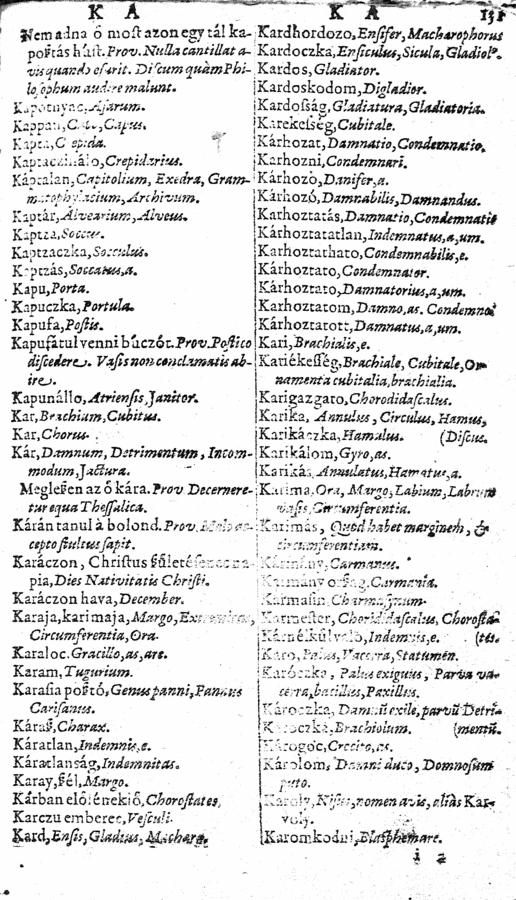 K A
K A 131
Nem adna ó most azon egy tál ka-
poſtás húſt. Prov. Nulla cantillat a-
vis quando eſurit. Di cum quàm Phi-
loſophum audire malunt.
Kapotnyac, Aſarum.
Kappan, Capus.
Kapta, Crepida.
Kaptacſináló, Crepidarius.
Káptalan, Capitolium, Exedra, Gram-
matophylacium, Archivum.
Kaptár, Alvearium, Alveus.
Kaptza, Soccus.
Kaptzaczka, Socculus.
Kaptzás, Soccatus, a.
Kapu, Porta.
Kapuczka, Portula.
Kapufa, Poſtis.
Kapufátul venni búczót. Prov. Poſtico
diſcedere. Vaſis non conclamatis ab-
ire.
Kapunálló, Atrienſis, Janitor.
Kar, Brachium, Cubitus.
Kar, Chorus.
Kár, Damnum, Detrimentum, Incom-
modum, Jactura.
Megleßen az ó kára. Prov Decernere-
tur equa Theſſalica.
Kárán tanul à bolond. Prov. Malo ac-
cepto ſtultus ſapit.
Karáczon, Chriſtus ßületéſenec na-
pia, Dies Nativitatis Chriſti.
Karáczon hava, December.
Karaja, karimaja, Margo, Extremitas,
Circumferentia, Ora.
Karaloc. Gracillo, as, are.
Karam, Tugurium.
Karaſia poßtó, Genus panni, Pannus
Cariſanus.
Káraß, Charax.
Káratlan, Indemnis, e.
Káratlanság, Indemnitas.
Karay, ßél, Margo.
Kárban elóléneklő, Choroſtates.
Karczu emberec, Veſculi.
Kard, Enſis, Gladius, Machæra.
Kardhordozo, Enſifer, Machærophorus
Kardoczka, Enſiculus, Sicula, Gladiol9.
Kardos, Gladiator.
Kardoskodom, Digladior.
Kardoſság, Gladiatura, Gladiatoria.
Karekeſség, Cubitale.
Kárhozat, Damnatio, Condemnatio.
Kárhozni, Condemnari.
Kárhozó, Danifer, a.
Kárhozó, Damnabilis, Damnandus.
Kárhoztatás, Damnatio, Condemnatio
Kárhoztatatlan, Indemnatus, a, um.
Kárhoztathato, Condemnabilis, e.
Kárhoztato, Condemnator.
Kárhoztato, Damnatorius, a, um.
Karhoztatom, Damno, as. Condemno
Kárhoztatott, Damnatus, a, um.
Kari, Brachialis, e.
Kariékeſség, Brachiale, Cubitale, Or-
namenta cubitalia, brachialia.
Karigazgato, Chorodidaſcalus.
Karika, Annulus, Circulus, Hamus,
Karikáczka, Hamulus. (Diſcus.
Karikálom, Gyro, as.
Karikás, Annulatus, Hamatus, a.
Karima, Ora, Margo, Labium, Labrum
vaſis, Circumferentia.
Karimás, Quod habet marginem, &
circumferentiam.
Kármány, Carmanus.
Karmány orſzag, Carmania.
Karmaſin, Charmaſinum.
Karmeſter, Chorididaſcalus, Choroſta-
Kárnélkűlvaló, Indemnis, e. (tes.
Karo, Palus, Vacerra, Statumen.
Karóczka, Palus exiguus, Parva va-
cerra, bacillus, Paxillus.
Károczka, Damnũ exile, parvũ Detri-
Karoczka, Brachiolum. (mentũ.
Károgoc, Crocito, as.
Károlom, Damni duco, Domnoſum
puto.
Karoly, Niſus, nomen avis, aliàs Kar-
voly.
Karomkodni, Blaſphemare.
i 2